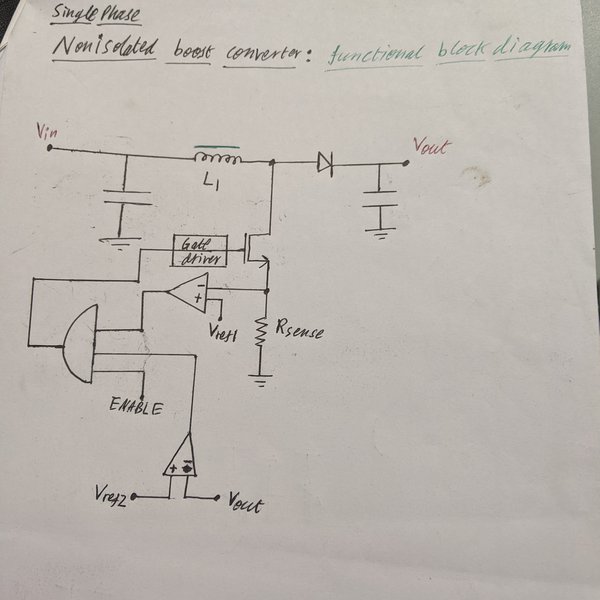 Single Phase
Nonisolated boost converter: functional block diagram
Vin
Vout
L1
Gate
driver
-
+
Vref1
Rsense
ENABLE
+ -
Vref2
Vout